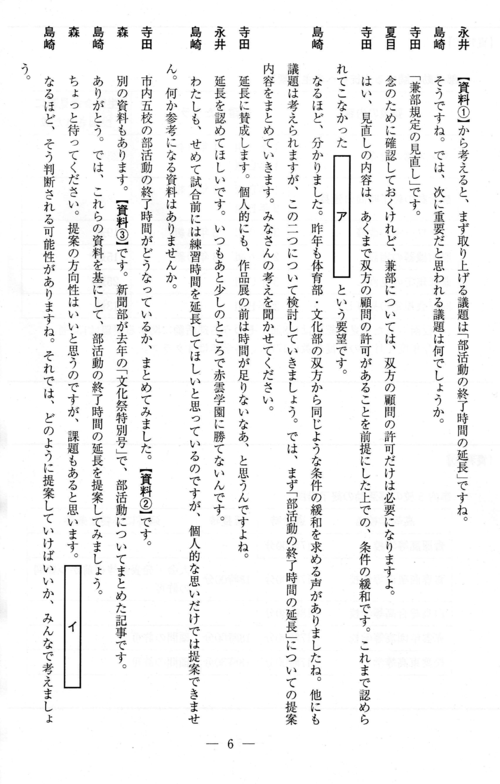 永井　【資料①】から考えると、まず取り上げる議題は「部活動の終了時間の延長」ですね。
島崎　そうですね。では、次に重要だと思われる議題は何でしょうか。
寺田　「兼部規定の見直し」です。
夏目　念のために確認しておくけれど、兼部については、双方の顧問の許可だけは必要になりますよ。
寺田　はい、見直しの内容は、あくまで双方の顧問の許可があることを前提にした上での、条件の緩和です。これまで認めら
れてこなかった　ア　という要望です。
島崎　なるほど、分かりました。昨年も体育部・文化部の双方から同じような条件の緩和を求める声がありましたね。他にも
議題は考えられますが、この二つについて検討していきましょう。では、まず「部活動の終了時間の延長」についての提案
内容をまとめていきます。みなさんの考えを聞かせてください。
寺田　延長に賛成します。個人的にも、作品展の前は時間が足りないなあ、と思うんですよね。
永井　延長を認めてほしいです。いつもあと少しのところで赤雲学園に勝てないんです。
島崎　わたしも、せめて試合前には練習時間を延長してほしいと思っているのですが、個人的な思いだけでは提案できませ
ん。何か参考になる資料はありませんか。
寺田　市内五校の部活動の終了時間がどうなっているか、まとめてみました。【資料②】です。
森　別の資料もあります。【資料③】です。新聞部が去年の「文化祭特別号」で、部活動についてまとめた記事です。
島崎　ありがとう。では、これらの資料を基にして、部活動の終了時間の延長を提案してみましょう。
森　ちょっと待ってください。提案の方向性はいいと思うのですが、課題もあると思います。　イ
島崎　なるほど、そう判断される可能性がありますね。それでは、どのように提案していけばいいか、みんなで考えましょ
う。
— 6 —